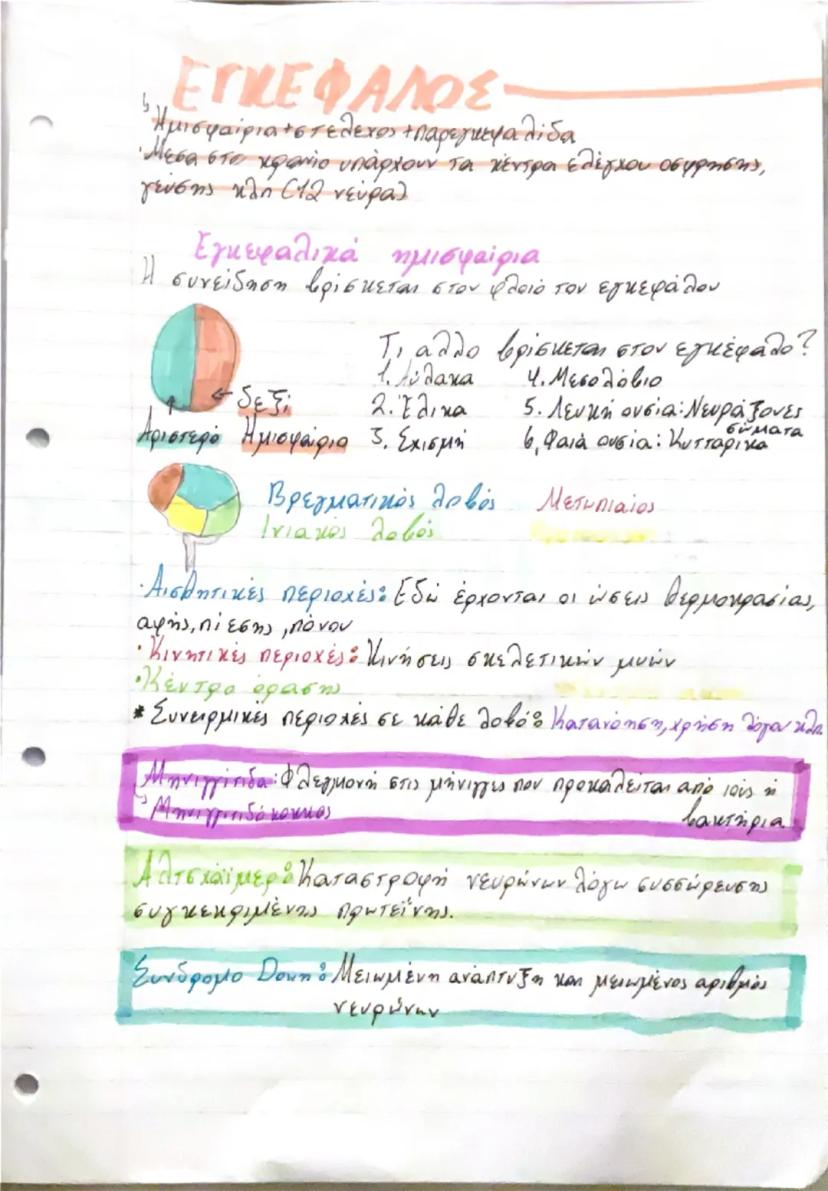 ΕΓΚΕΦΑΛΟΣ
Ημισφαίρια+στέλεχος+παρεγκεφαλίδα
·Μέσα στο κρανίο υπάρχουν τα κέντρα ελέγχου οσφρησης,
γεύσης κλπ (12 νεύρα)
Εγκεφαλικά ημισφαίρια
Η συνείδηση βρίσκεται στον φλοιό του εγκεφάλου
Τι αλλο βρίσκεται στον εγκέφαλο?
1. Αύλακα 4. Μεσολόβιο
← δεξί 2. Έλικα 5. Λευκή ουσία: Νευράξονες
Αριστερό Ημισφαίριο 3. Σχισμή 6. Φαιά ουσία: Κυτταρικα σώματα
Βρεγματικός λοβός Μετωπιαίος
Ινιακός λοβός
·Αισθητικές περιοχές: Εδώ έρχονται οι ώσεις θερμοκρασίας,
αφής, πίεσης, πόνου
·Κινητικές περιοχές: Κινήσεις σκελετικών μυών
·Κέντρο όρασης
* Συνειρμικές περιοχές σε κάθε λοβό: Κατανόηση, χρήση λόγου κλπ
Μηνιγγίτιδα: Φλεγμονή στις μήνιγγες που προκαλείται από ιούς ή
βακτήρια
Μηνιγγιτιδόκοκκος
Αλτσχάιμερ: Καταστροφή νευρώνων λόγω συσσώρευσης
συγκεκριμένης πρωτεΐνης.
Σύνδρομο Down: Μειωμένη ανάπτυξη και μειωμένος αριθμός
νευρώνων